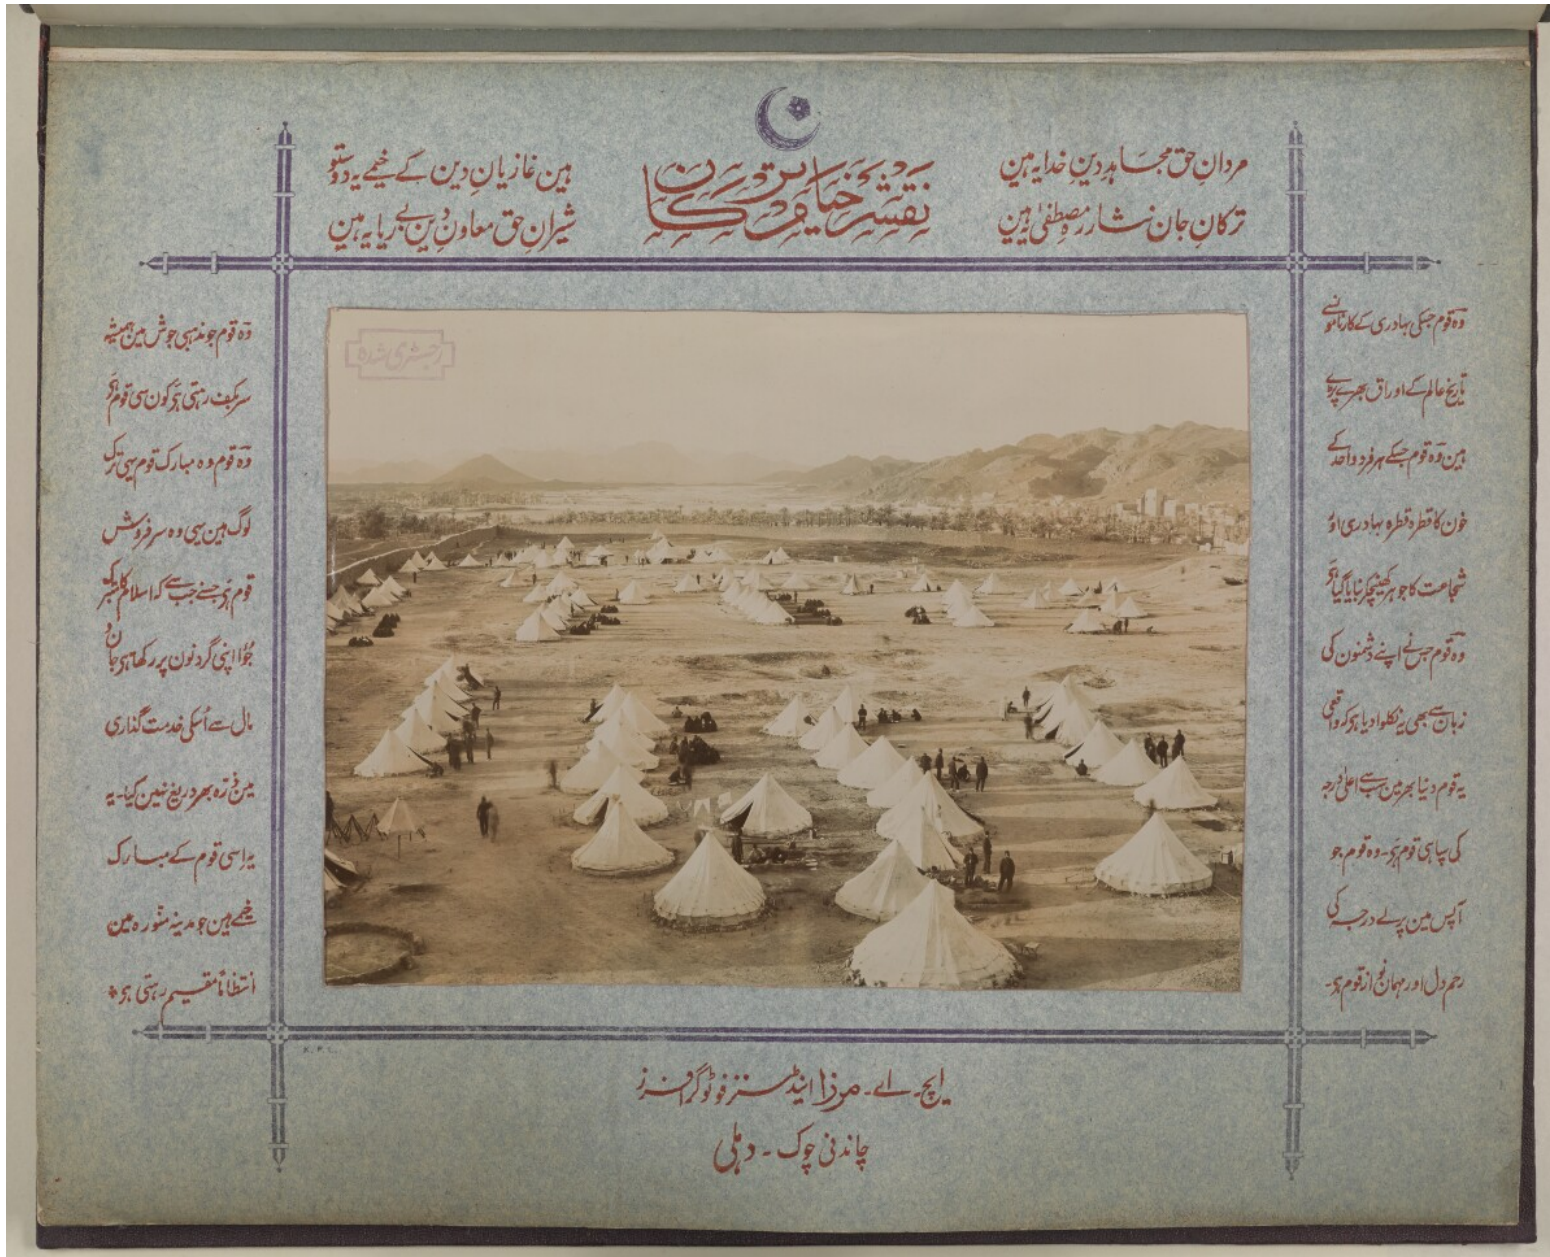 مردانِ حق مجاہدِ دینِ خدا یہ ہین
ترکانِ جان نثار رہِ مصطفیٰ یہ ہین
نقشہ خیام ترکون کا
ہین غازیانِ دین کے خیمے یہ دوستو
شیرانِ حق معاونِ دینِ بے ریا یہ ہین
رجسٹری شدہ
وہ قوم جسکی بہادری کے کارنامونسے
تاریخ عالم کے اوراق بھرے پڑے
ہین وہ قوم جسکے ہر فرد واحد کے
خون کا قطرہ قطرہ بہادری اور
شجاعت کا جوہر کھینچکر بنایا گیا ہو
وہ قوم جس نے اپنے دشمنون کی
زبان سے بھی یہ نکلوا دیا ہو کہ واقعی
یہ قوم دنیا بھر مین سب سے اعلیٰ درجہ
کی سپاہی قوم ہو۔ وہ قوم جو
آپس مین پرلے درجہ کی
رحم دل اور مہمان نواز قوم ہو۔
وہ قوم جو مذہبی جوش مین ہمیشہ
سر بکف رہتی ہو کون سی قوم ہو
وہ قوم وہ مبارک قوم یہی ترک
لوگ ہین یہی وہ سرفروش
قوم ہو جسنے جب سے کہ اسلام کا متبرک
جُوا اپنی گردنون پر رکھا ہو جان و
مال سے اُسکی خدمت گذاری
مین ذرہ بھر دریغ نہین کیا۔ یہ
یہ اسی قوم کے مبارک
خیمے ہین جو مدینہ منورہ مین
انتظاماً مقیم رہتی ہو *
ایچ۔ اے۔ مرزا اینڈ سنز فوٹو گرافرز
چاندنی چوک۔ دہلی